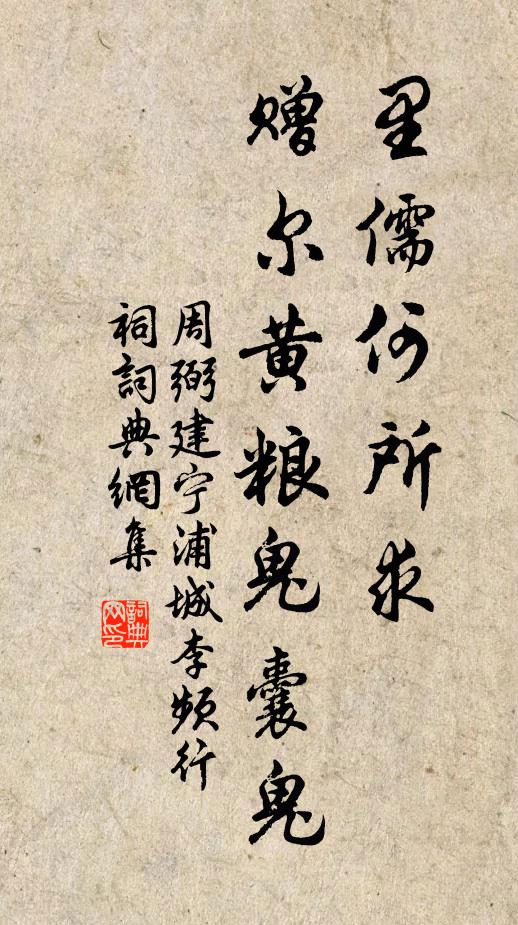 里儒何所求
赠尔黄粮鬼囊鬼
周弼建宁浦城李频行
祠詞典網集
詞典网印